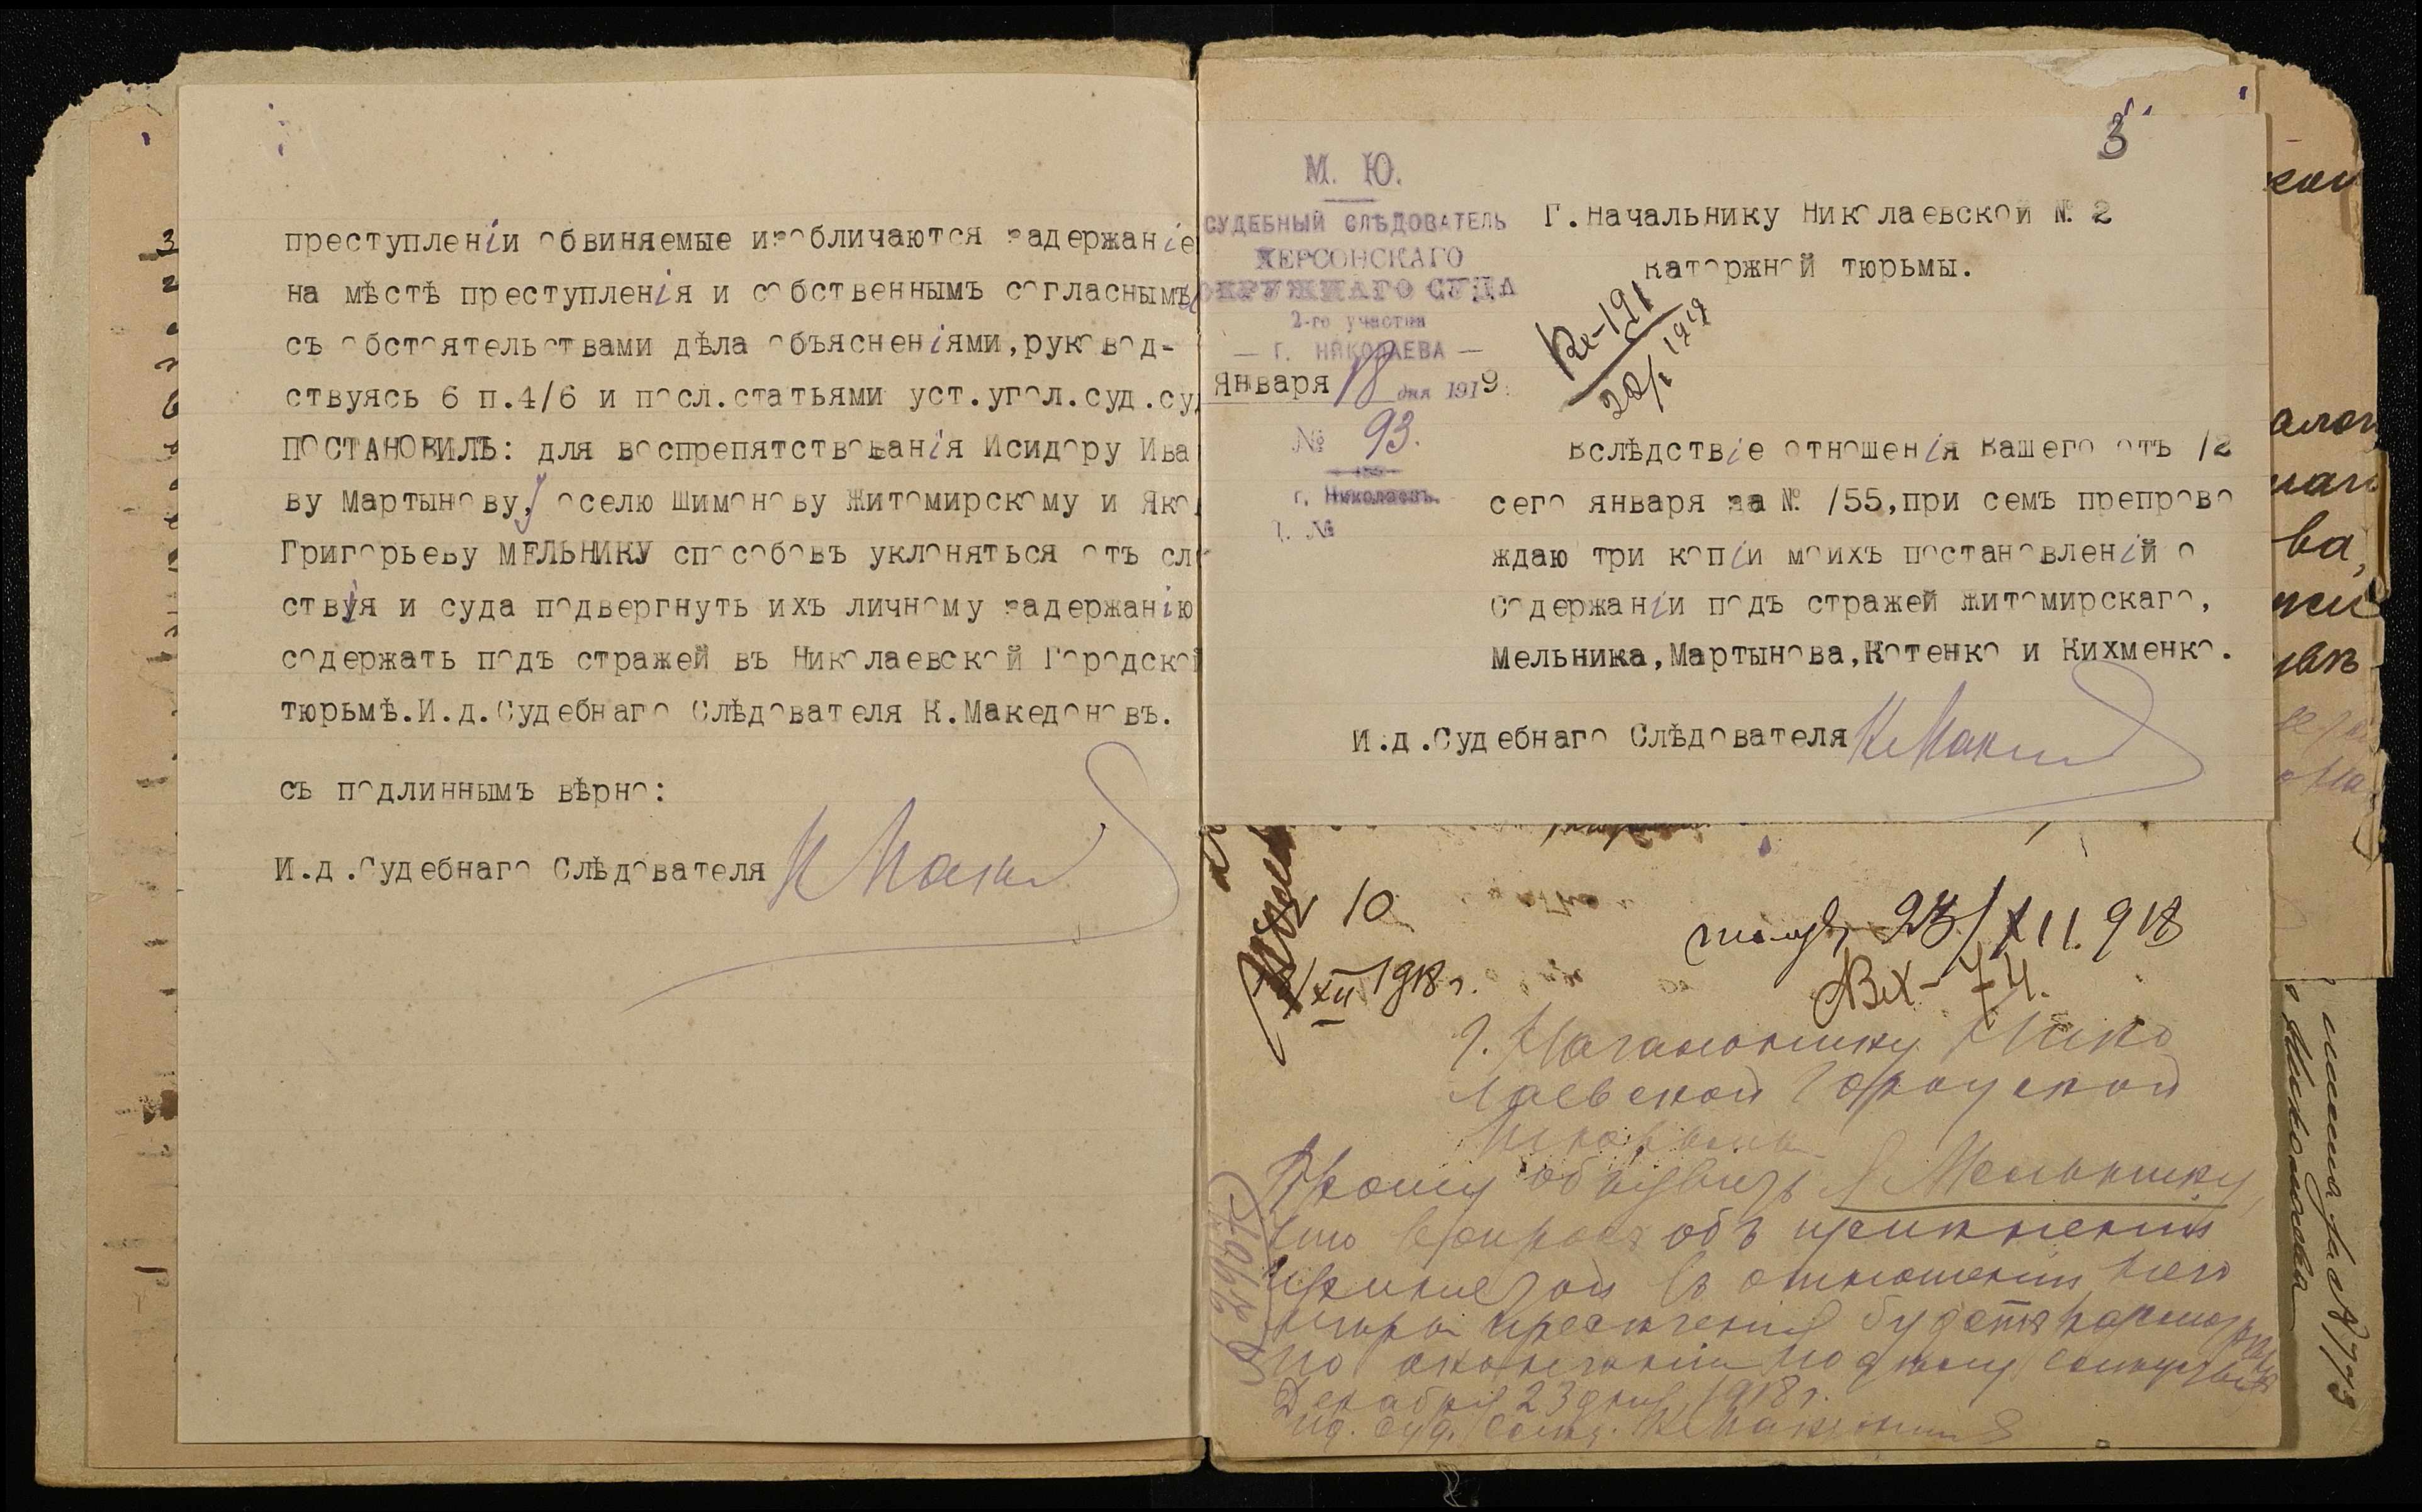 преступленіи обвиняемые изобличаются задержаніе
на мѣстѣ преступленія и собственнымъ согласнымъ
съ обстоятельствами дѣла объясненіями,руковод-
ствуясь 6 п.4/6 и посл.статьями уст.угол.суд.су
ПОСТАНОВИЛЪ: для воспрепятствованія Исидору Ива
ву Мартынову, оселю Шимонову Житомирскому и Яко
Григорьеву МЕЛЬНИКУ способовъ уклоняться отъ слѣ
ствія и суда подвергнуть ихъ личному задержанію
содержать подъ стражей въ Николаевской Городской
тюрьмѣ.И.д.Судебнаго Слѣдователя К.Македоновъ.
съ подлиннымъ вѣрно:
И.д.Судебнаго Слѣдователя
3
М. Ю.
СУДЕБНЫЙ СЛѢДОВАТЕЛЬ
ХЕРСОНСКАГО
ОКРУЖНАГО СУДА
2-го участка
— Г. НИКОЛАЕВА —
Января 18 дня 1919
№ 93.
г. Николаевъ.
№
Г.Начальнику Николаевской № 2
Каторжной тюрьмы.
Вх-191
20/I 1919
Вслѣдствіе отношенія Вашего отъ 12
сего января за № 155,при семъ препрово
ждаю три копіи моихъ постановленій о
Содержаніи подъ стражей Житомирскаго,
Мельника,Мартынова,Котенко и Кихменко.
И.д.Судебнаго Слѣдователя
10
XII 1918 г.
23/XII.918
Вх-74.
Г. Начальнику Нико
лаевской Городской
Тюрьмы
Прошу объявить Я Мельнику,
что вопросъ объ измѣненіи
принятой въ отношеніи него
мѣры пресѣченія будетъ
по окончаніи
Декабря 23 дня 1918 г.
ИД. Суд. Слѣд. К Македоновъ